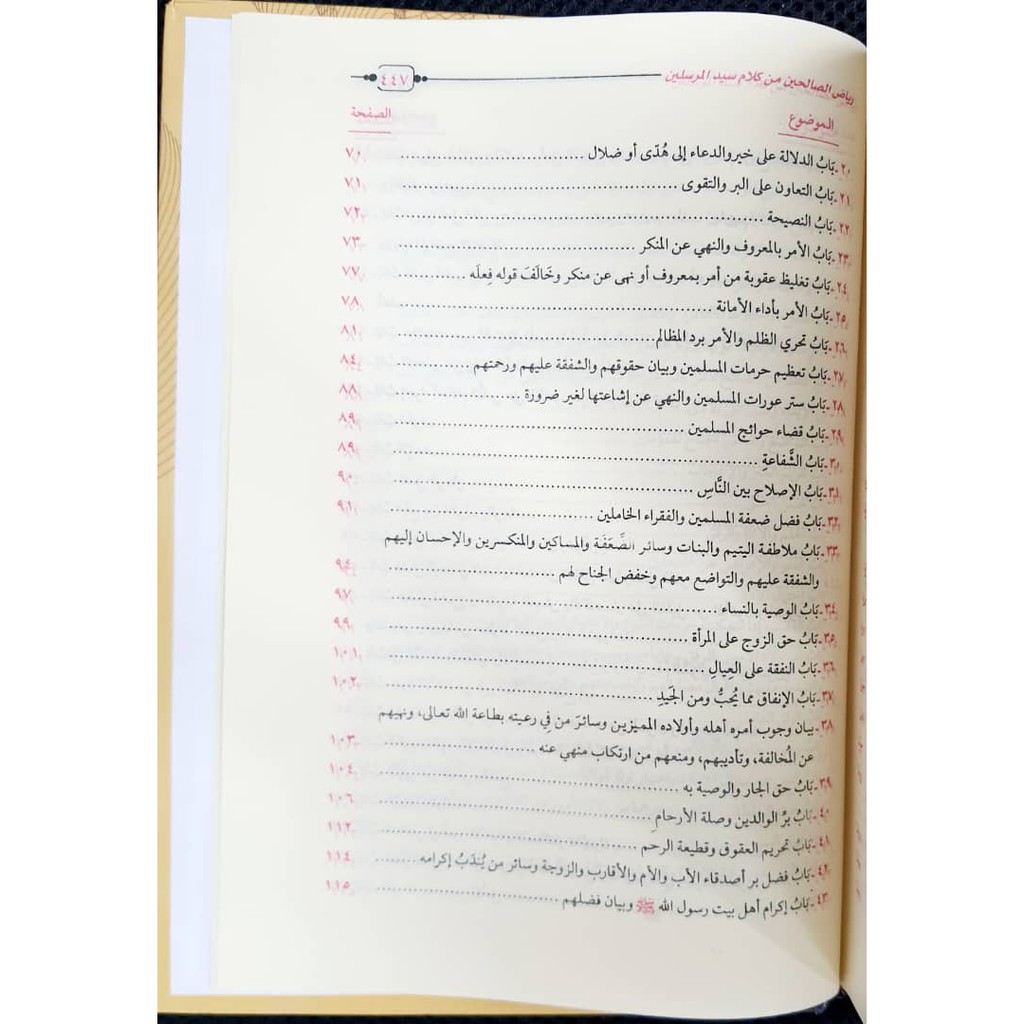 رياض الصالحين من كلام سيد المرسلين ٤٤٧
الموضوع الصفحة
٢٠-بَابُ الدلالة على خير والدعاء إلى هُدًى أو ضلال ........ ٧٠
٢١-بَابُ التعاون على البر والتقوى ........ ٧١
٢٢-بَابُ النصيحة ........ ٧٢
٢٣-بَابُ الأمر بالمعروف والنهي عن المنكر ........ ٧٣
٢٤-بَابُ تغليظ عقوبة من أمر بمعروف أو نهى عن منكر وخَالَفَ قوله فِعلَه ........ ٧٧
٢٥-بَابُ الأمر بأداء الأمانة ........ ٧٨
٢٦-بَابُ تحري الظلم والأمر برد المظالم ........ ٨١
٢٧-بَابُ تعظيم حرمات المسلمين وبيان حقوقهم والشفقة عليهم ورحمتهم ........ ٨٤
٢٨-بَابُ ستر عورات المسلمين والنهي عن إشاعتها لغير ضرورة ........ ٨٨
٢٩-بَابُ قضاء حوائج المسلمين ........ ٨٩
٣٠-بَابُ الشَّفاعةِ ........ ٨٩
٣١-بَابُ الإصلاح بين النَّاسِ ........ ٩٠
٣٢-بَابُ فضل ضعفة المسلمين والفقراء الخاملين ........ ٩١
٣٣-بَابُ ملاطفة اليتيم والبنات وسائر الضَّعَفَة والمساكين والمنكسرين والإحسان إليهم
والشفقة عليهم والتواضع معهم وخفض الجناح لهم ........ ٩٤
٣٤-بَابُ الوصية بالنساء ........ ٩٧
٣٥-بَابُ حق الزوج على المرأة ........ ٩٩
٣٦-بَابُ النفقة على العِيالِ ........ ١٠١
٣٧-بَابُ الإنفاق مما يُحبُّ ومن الجَيدِ ........ ١٠٢
٣٨-بيان وجوب أمره أهله وأولاده المميزين وسائرَ من في رعيته بطاعة الله تعالى، ونهيهم
عن المُخالفة، وتأديبهم، ومنعهم من ارتكاب منهي عنه ........ ١٠٣
٣٩-بَابُ حق الجار والوصية به ........ ١٠٤
٤٠-بَابُ برُ الوالدين وصلة الأرحامِ ........ ١٠٦
٤١-بَابُ تحريم العقوق وقطيعة الرحم ........ ١١٢
٤٢-بَابُ فضل بر أصدقاء الأب والأم والأقارب والزوجة وسائر من يُندَبُ إكرامه ........ ١١٤
٤٣-بَابُ إكرام أهل بيت رسول الله ﷺ وبيان فضلهم ........ ١١٥